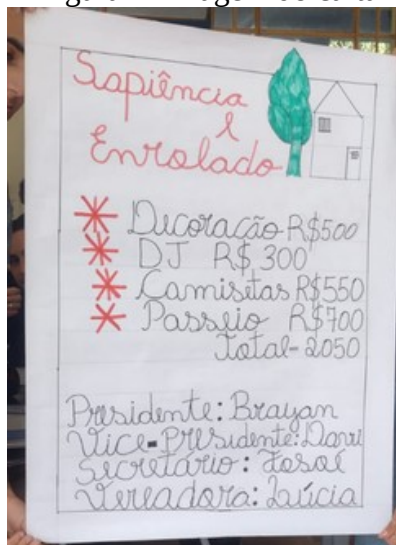 Sapiência
e
Enrolado
Decoração R$500
DJ R$ 300
Camisetas R$550
Passeio R$700
Total- 2050
Presidente: Brayan
Vice-Presidente: Davi
Secretário:
Vereadora: